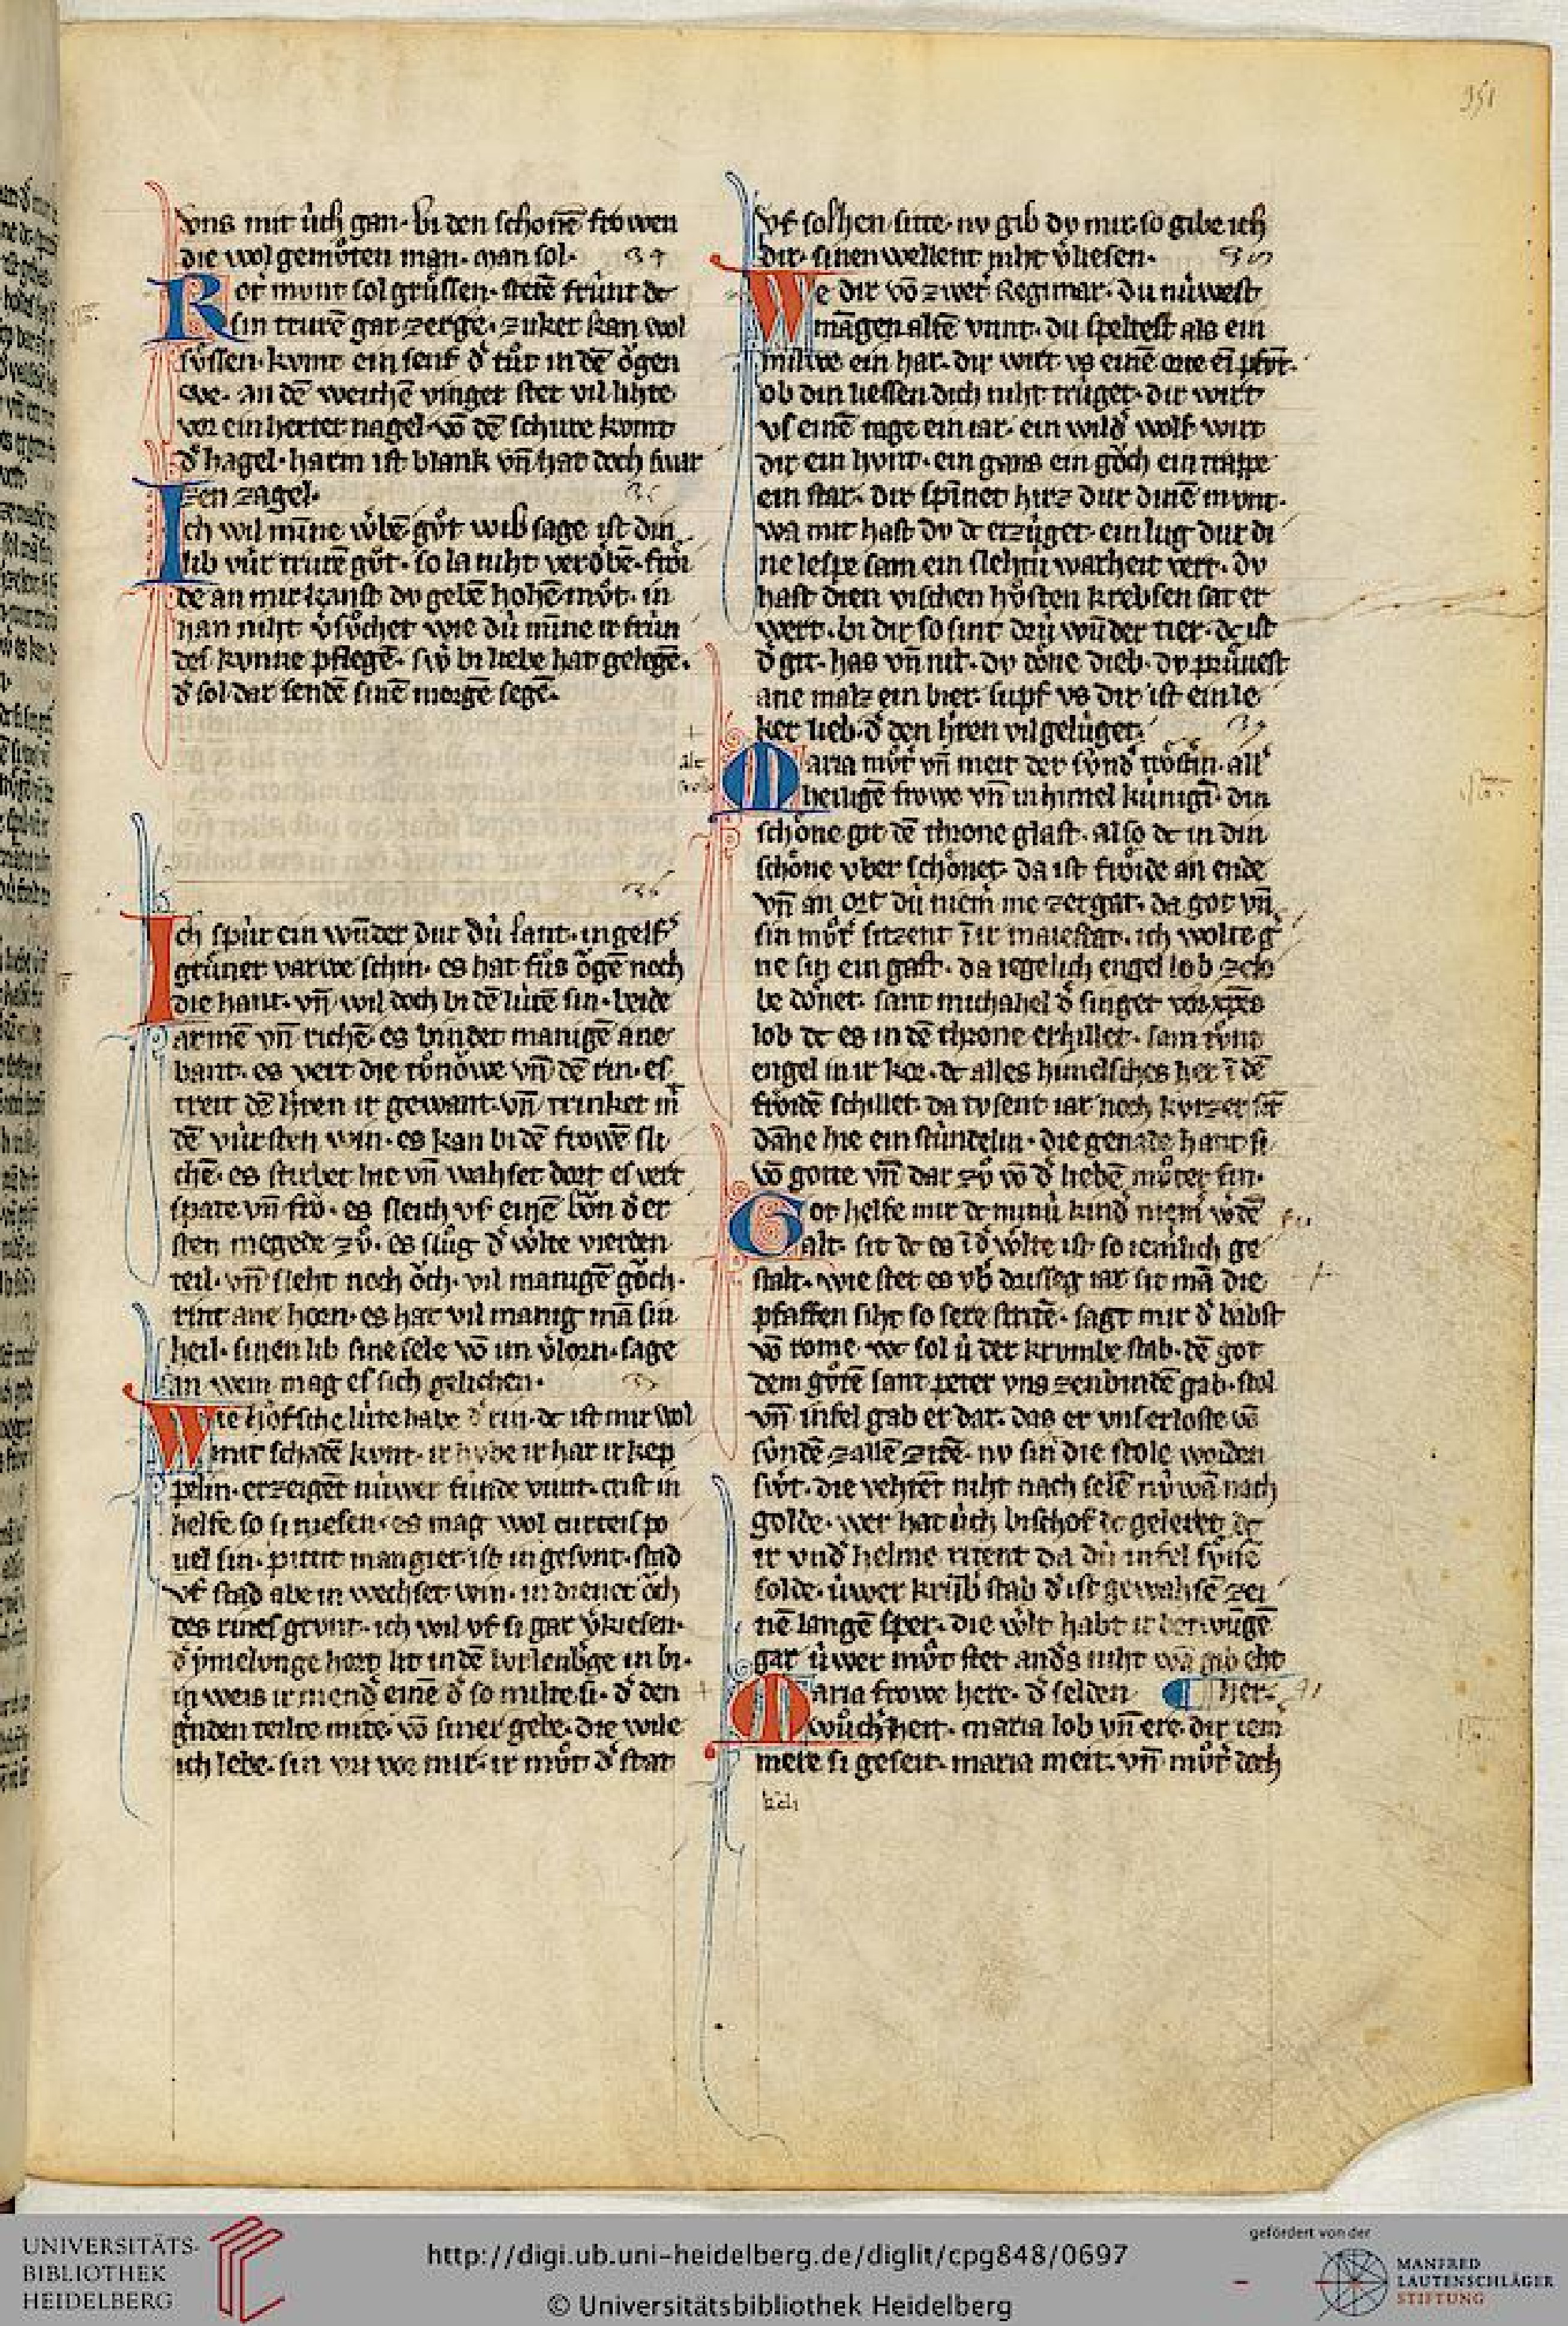 351
vns mit úch gan· bi den schonē frowen
die wol gemůten man· man sol· 34
Rot mvnt sol grůssen· stetē frúnt dc
sin trurē gar zerge· zuker kan wol
sůssen· kvmt ein senf d͛ tůt in dē ǒgen
we· an dē weichē vinger stet vil lihte
vor ein herter nagel· vō dē schvre komt
d͛ hagel· harm ist blank vn̄ hat doch swar
zen zagel· 35
Ich wil mīne v̓bē gůt wib sage ist din
lib vúr trurē gůt· so la niht verǒbē· frǒi
de an mir kanst dv gebē hohē můt· in
nan niht v͛sůchet wie dú mīne ir frún
des kvnne pflegē· sw͛ bi liebe hat gelegē·
d͛ sol dar sendē sinē morgē segē·
36
Ich spúr ein wūder dur dú lant· in gelf͛
grůner varwe schin· es hat fůs ǒgē noch
die hant· vn̄ wil doch bi dē lútē sin· beide
armē vn̄ richē· es bindet manigē ane
bant· es vert die tůnǒwe vn̄ dē rin· es
treit dē h͛ren ir gewant· vn̄ trinket in
dē vúrsten win· es kan bi dē frowē sli
chē· es stirbet hie vn̄ wahset dort es vert
spate vn̄ frů· es sleich vf einē bǒn d͛ er
sten megede zů· es slůg d͛ w͛lte vierden
teil· vn̄ sleht noch ǒch· vil manigē gǒch·
rint ane horn· es hat vil manig mā sin
heil· sinen lib sine sele vō im v͛lorn· sage
an wem mag es sich gelichen· 37
Wie hofsche lúte habe d͛ rin· dc ist mir wol
mit schadē kvnt· ir hvbe ir har ir kep
pelin· erzeigēt núwer fúnde vunt· crist in
helfe so si niesen· es mag wol curteis po
uel sin· pittit mangier ist in gesvnt· stad
vf stad abe in wechset win· in dienet ǒch
des rines grvnt· ich wil vf si gar v͛kiesen·
d͛ ymelvnge hort lit in dē burlenb͛ge in bi·
in weis ir niend͛ einē d͛ so milte si· d͛ den
g͛nden teilte mite· vō siner gebe· die wile
ich lebe· sin vri vor mir· ir můt d͛ stat
vf solhen sitte· nv gib dv mir· so gibe ich
dir· sinen wellent niht v͛liesen· 38
We dir vō zwet͛ Regimar· du núwest
māgen altē vunt· du speltest als ein
milwe ein har· dir wirt vs einē orte eī pfvt·
ob din liessen dich niht trúget· dir wirt
vs einē tage ein iar· ein wild͛ wolf wirt
dir ein hvnt· ein gans ein gǒch ein trappe
ein star· dir spīnet hirz dur dinē mvnt·
wa mit hast dv dc erzúget· ein lug dur di
ne lespe sam ein slehtú warheit vert· dv
hast dien vischen hůsten krebsen sat er
wert· bi dir so sint drú wūder tier· dc ist
d͛ git· has vn̄ nit· dv dǒne dieb· dv prúuest
ane malz ein bier· supf vs dir ist ein le
ker lieb· d͛ den h͛ren vil gelúget· 39
Maria můt͛ vn̄ meit der súnd͛ trǒstin· all͛
heiligē frowe vn̄ in himel kúnigī· din
schǒne git dē throne glast· also dc in din
schǒne vber schǒnet· da ist frǒide an ende
vn̄ an ort dú niem͛ me zergat· da got vn̄
sin můt͛ sitzent ī ir maiestat· ich wolte g͛
ne sin ein gast· da iegelich engel lob zelo
be dǒnet· sant michahel d͛ singet vor xp̄es
lob dc es in dē throne erhillet· sam tůnt
engel in ir kor· dc alles himelsches her ī dē
frǒidē schillet· da tvsent iar noch kvrzer sīt
dāne hie ein stúndelin· die genade hant si
vō gotte vn̄ dar zů vō d͛ liebē můter sin·
Got helfe mir dc minú kind niem͛ w͛dē
alt· sit dc es ī d͛ w͛lte ist so iemīlich ge
stalt· wie stet es vb͛ drisseg iar sit mā die
pfaffen siht so sere stritē· sagt mir d͛ babst
vō rome· wc sol ú der krvmbe stab· dē got
dem gůtē sant peter vns zenbindē gab· stol
vn̄ infel gab er dar· das er vns erloste vō
súndē zallē zitē· nv sin die stole worden
sw͛t· die vehtēt niht nach selē nv wā nach
golde· wer hat úch bischof dc geleret dc
ir vnd͛ helme ritent da dú infel sǒne
solde· úwer krūb stab d͛ ist gewahsē zei
nē langē sper· die w͛lt habt ir betwūgē
gar úwer můt stet and͛s niht wā gib eht
Maria frowe here· d͛ selden ¶ her· 41
wůcherheit· maria lob vn̄ ere· dir iem͛
mere si geseit· maria meit· vn̄ můt͛ doch
UNIVERSITÄTS-
BIBLIOTHEK
HEIDELBERG
http://digi.ub.uni-heidelberg.de/diglit/cpg848/0697
© Universitätsbibliothek Heidelberg
gefördert von der
MANFRED
LAUTENSCHLÄGER
STIFTUNG